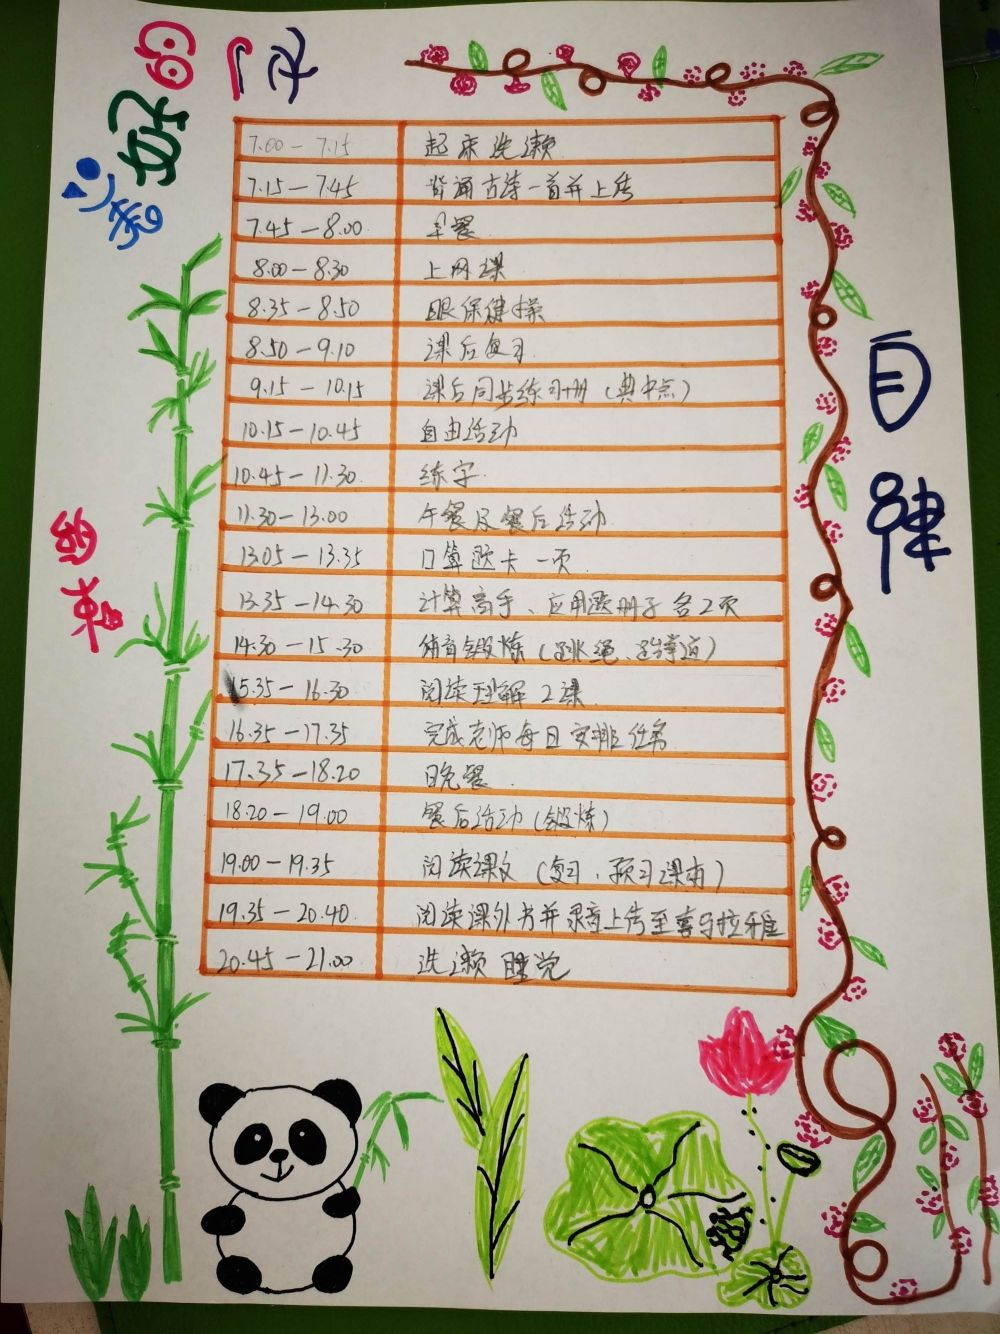 好的
自律
约束
7.00-7.15 起床洗漱
7.15-7.45 背诵古诗一首并上传
7.45-8.00 早餐
8.00-8.30 上网课
8.35-8.50 眼保健操
8.50-9.10 课后复习
9.15-10.15 课后同步练习册(典中点)
10.15-10.45 自由活动
10.45-11.30 练字
11.30-13.00 午餐及餐后活动
13.05-13.35 口算题卡一页
13.35-14.30 计算高手、应用题册子各2页
14.30-15.30 体育锻炼(跳绳、跆拳道)
15.35-16.30 阅读理解2课
16.35-17.35 完成老师每日安排任务
17.35-18.20 晚餐
18.20-19.00 餐后活动(锻炼)
19.00-19.35 阅读课文(复习、预习课本)
19.35-20.40 阅读课外书并录音上传至喜马拉雅
20.45-21.00 洗漱睡觉